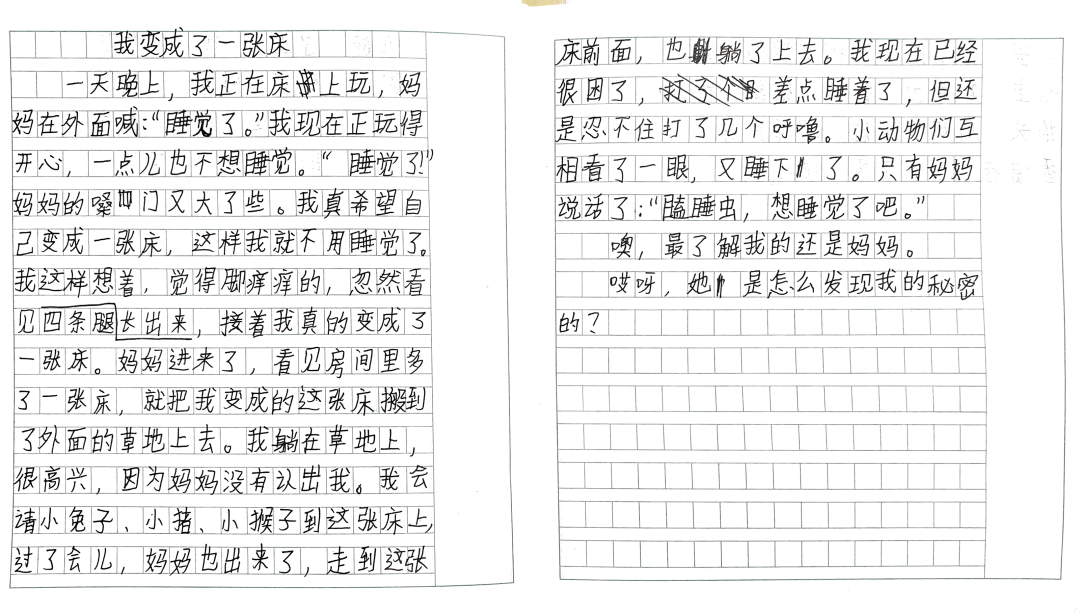 我变成了一张床
一天晚上，我正在床上玩，妈
妈在外面喊：“睡觉了。”我现在正玩得
开心，一点儿也不想睡觉。“睡觉了！”
妈妈的嗓门又大了些。我真希望自
己变成一张床，这样我就不用睡觉了。
我这样想着，觉得脚痒痒的，忽然看
见四条腿长出来，接着我真的变成了
一张床。妈妈进来了，看见房间里多
了一张床，就把我变成的这张床搬到
了外面的草地上去。我躺在草地上，
很高兴，因为妈妈没有认出我。我会
请小兔子、小猪、小猴子到这张床上，
过了会儿，妈妈也出来了，走到这张
床前面，也躺了上去。我现在已经
很困了，差点睡着了，但还
是忍不住打了几个呼噜。小动物们互
相看了一眼，又睡下了。只有妈妈
说话了：“瞌睡虫，想睡觉了吧。”
噢，最了解我的还是妈妈。
哎呀，她是怎么发现我的秘密
的？